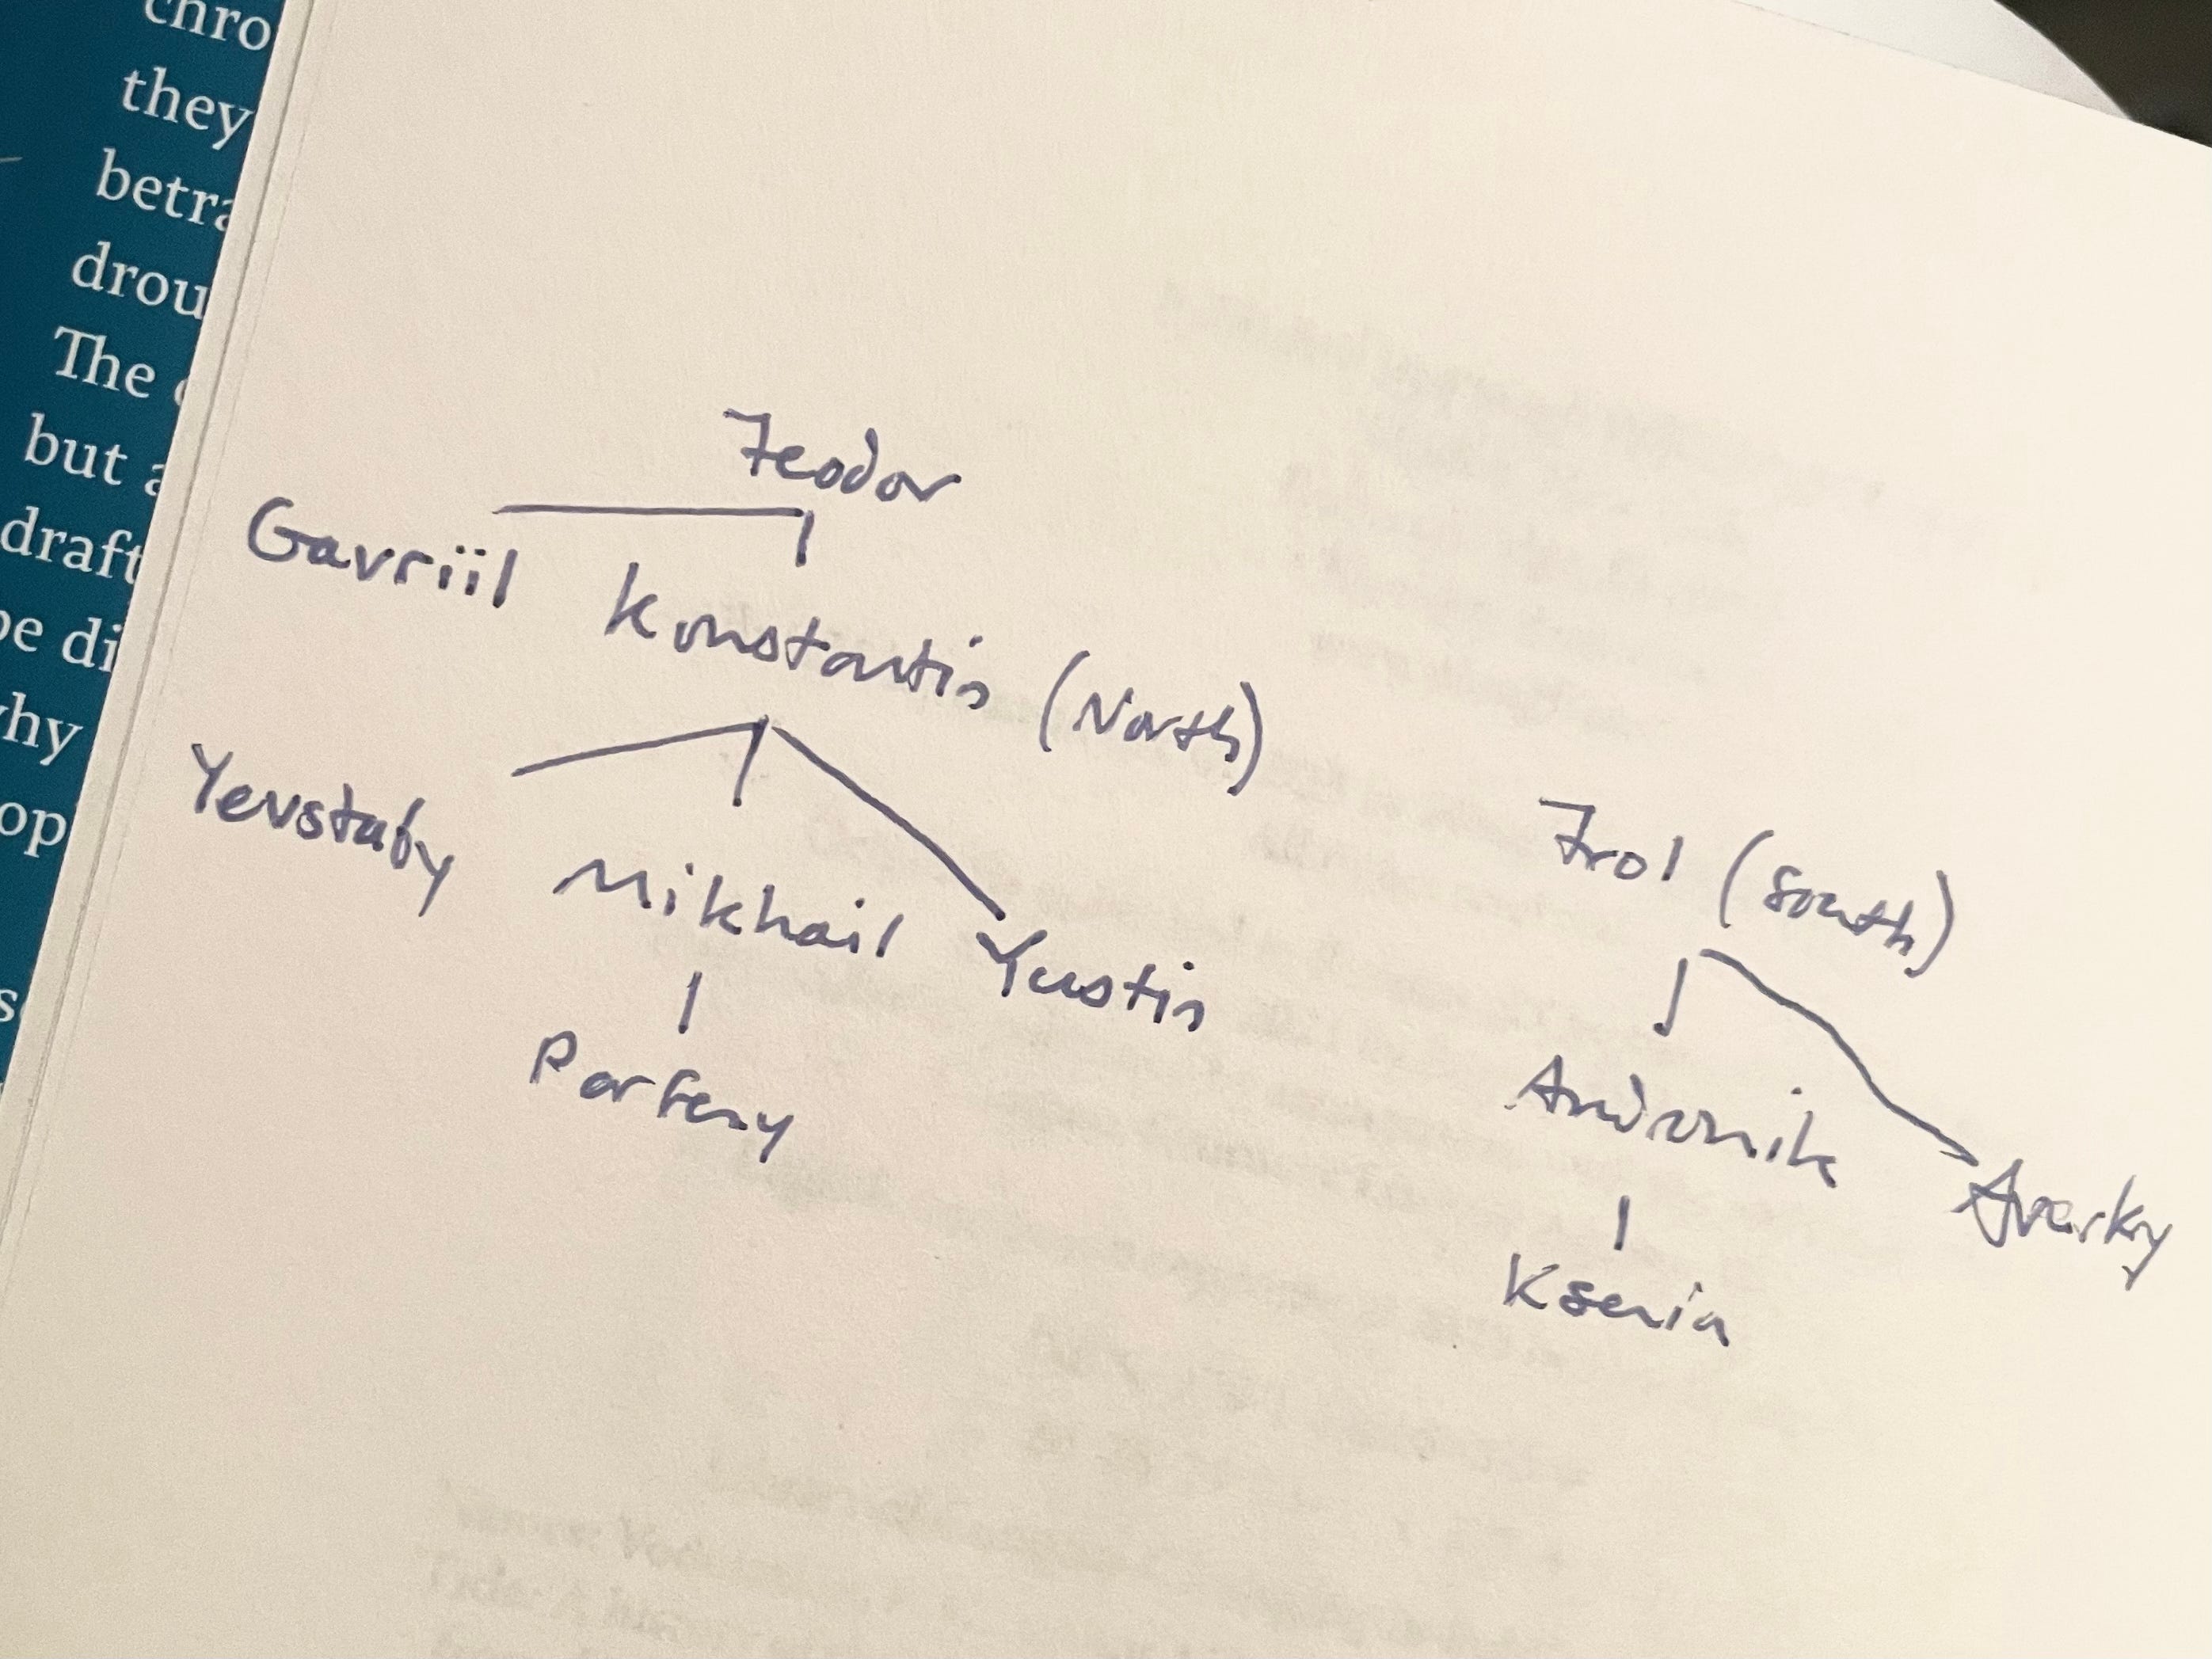 chro
they
betra
drou
The
but a
draft
be di
why
op
s
Feodor
Gavriil Konstantin (North)
Yevstafy Mikhail Yustin
Parfeny
Frol (South)
Andronik Averky
Ksenia